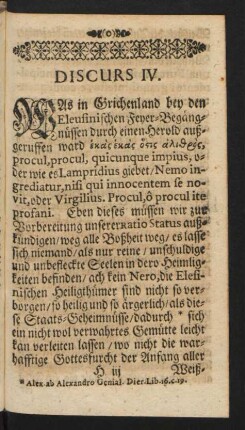 (o)
DISCURS IV.
WAs in Grichenland bey den
Eleusinischen Feyer-Begäng-
nüssen durch einen Herold auß-
geruffen ward ἑκὰς ἑκὰς ὅςις ἀλιτρὸς,
procul, procul, quicunque impius, o-
der wie es Lampridius giebet / Nemo in-
grediatur, nisi qui innocentem se no-
vit, oder Virgilius. Procul, ô procul ite
profani. Eben dieses müssen wir zur
Vorbereitung unserer Ratio Status auß-
kündigen / weg alle Boßheit weg / es lasse
sich niemand / als nur reine / unschuldige
und unbefleckte Seelen in dero Heimlig-
keiten befinden / ach fein Nero, die Elesi-
nischen Heiligthümer sind nicht so ver-
borgen / so heilig und so ärgerlich / als die-
se Staats-Geheimnüsse / dadurch * sich
ein nicht wol verwahrtes Gemütte leicht
kan verleiten lassen / wo nicht die war-
hafftige Gottesfurcht der Anfang aller
H iij Weiß-
* Alex. ab Alexandro Genial. Dier. Lib.